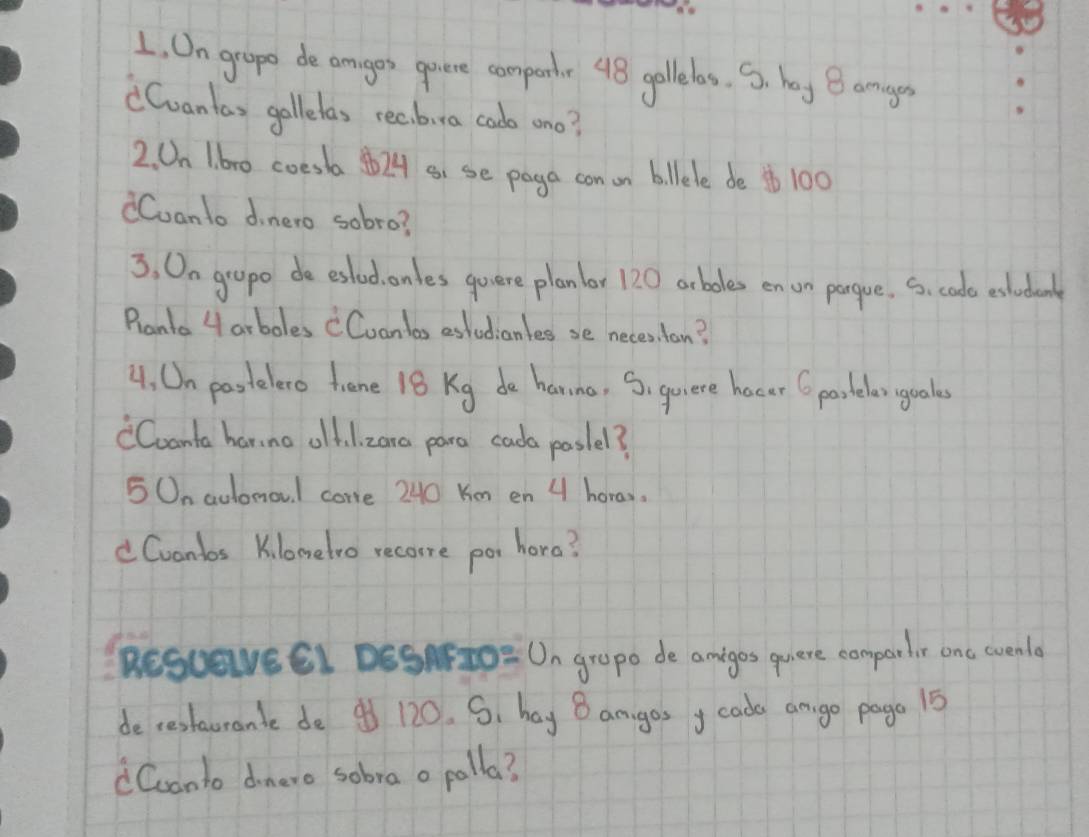 1. Un grupo de amigos quiere compartir 48 galletas. Si hay 8 amigos
¿Cuantas galletas recibira cada uno?
2. Un libro cuesta $24 si se paga con un billete de $100
¿Cuanto dinero sobro?
3. Un grupo de estudiantes quiere plantar 120 arboles en un parque. Si cada estudiante
Planta 4 arboles ¿Cuantos estudiantes se necesitan?
4. Un pastelero tiene 18 Kg de harina. Si quiere hacer 6 pasteles iguales
¿Cuanta harina ultilizara para cada pastel?
5 Un automovil corre 240 Km en 4 horas.
¿Cuantos Kilometro recorre por hora?
RESUELVE EL DESAFIO= Un grupo de amigos quiere compartir una cuenta
de restaurante de $ 120. Si hay 8 amigos y cada amigo paga 15
¿Cuanto dinero sobra o falta?